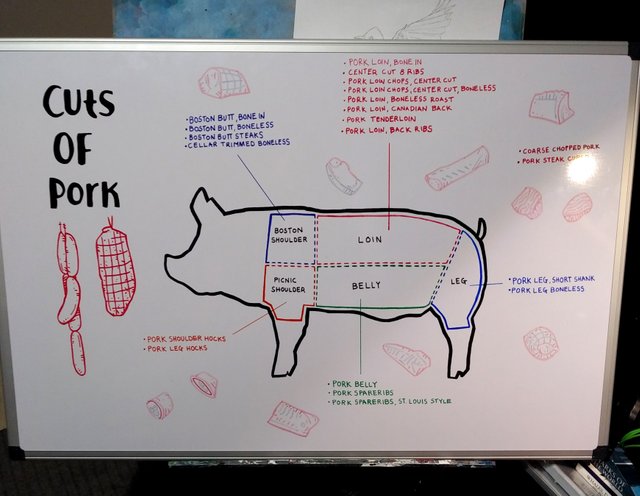 CUtS
OF
PORK
• PORK LOIN, BONE IN
• CENTER CUT 8 RIBS
• PORK LOW CHOPS, CENTER CUT
• PORK LOIN CHOPS, CENTER CUT, BONELESS
• PORK LOIN, BONELESS ROAST
• PORK LOIN, CANADIAN BACK
• PORK TENDERLOIN
• PORK LOIN, BACK RIBS
• BOSTON BUTT, BONE IN
• BOSTON BUTT, BONELESS
• BOSTON BUTT STEAKS
• CELLAR TRIMMED BONELESS
• COARSE CHOPPED PORK
• PORK STEAK
BOSTON
SHOULDER
LOIN
PICNIC
SHOULDER
BELLY
LEG
• PORK LEG, SHORT SHANK
• PORK LEG BONELESS
• PORK SHOULDER HOCKS
• PORK LEG HOCKS
• PORK BELLY
• PORK SPARERIBS
• PORK SPARERIBS, ST. LOUIS STYLE